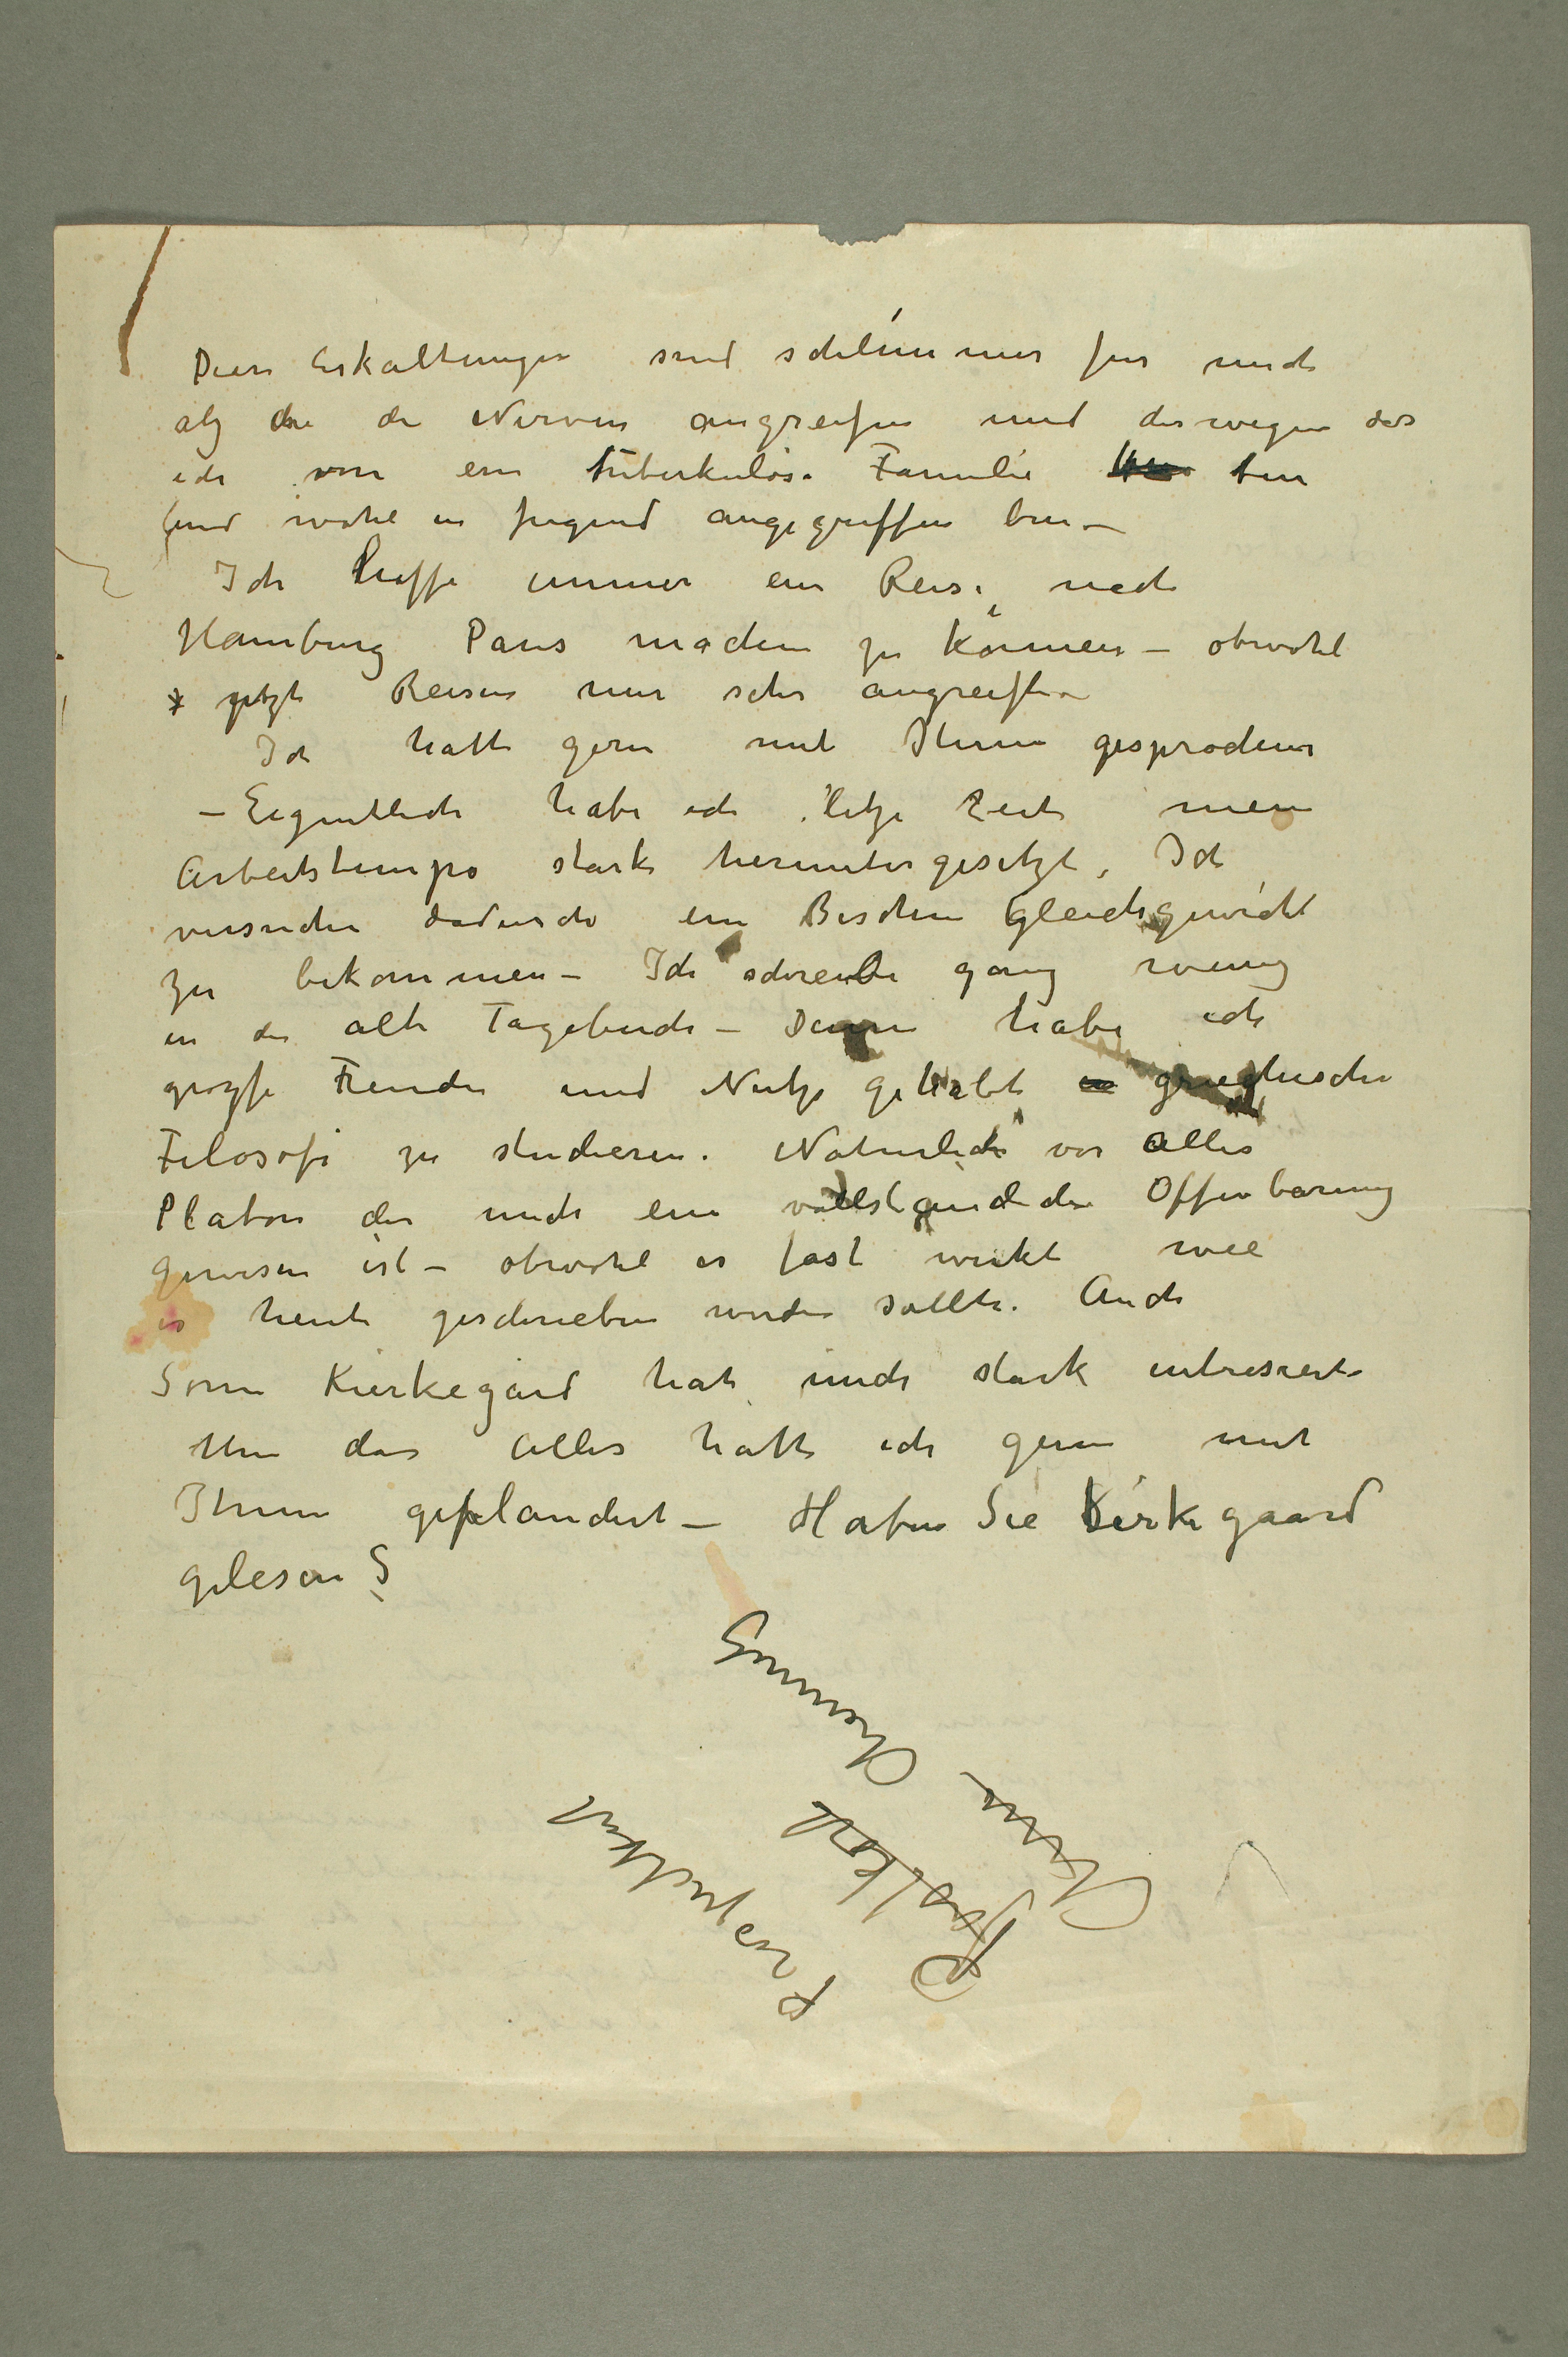 Diese Erkältungen sind schlimmer für mich
als die die Nerven angreifen und deswegen das
ich von ein tuberkuløse Familie bin
und wohl in Jugend angegriffen bin –
Ich hoffe immer ein Reise nach
Hamburg Paris machen zu können – obwohl
jetzt Reisen mir sehr angreift –
Ich hatte gern mit Ihnen gesprochen
– Eigentlich habe ich letze Zeit mein
Arbeitstempo stark heruntergesetzt, Ich
versuche dadurch ein Bischen Gleichgewicht
zu bekommen – Ich schreibe ganz wenig
in die alte Tagebuch – Dann habe ich
grozse Freude und Nutze gehabt grieghische
Filosofi zu studieren. Naturlich vor alles
Platon der mich ein vollständiche Offenbarung
gewesen ist – obwohl es fast wirkt wie
es heute geschrieben werden sollte. Auch
Sörn Kierkegård hat mich stark intressiert
Um das Alles hatte ich gern mit
Ihnen geplaudert – Haben Sie Kirkegaard
gelesen ?